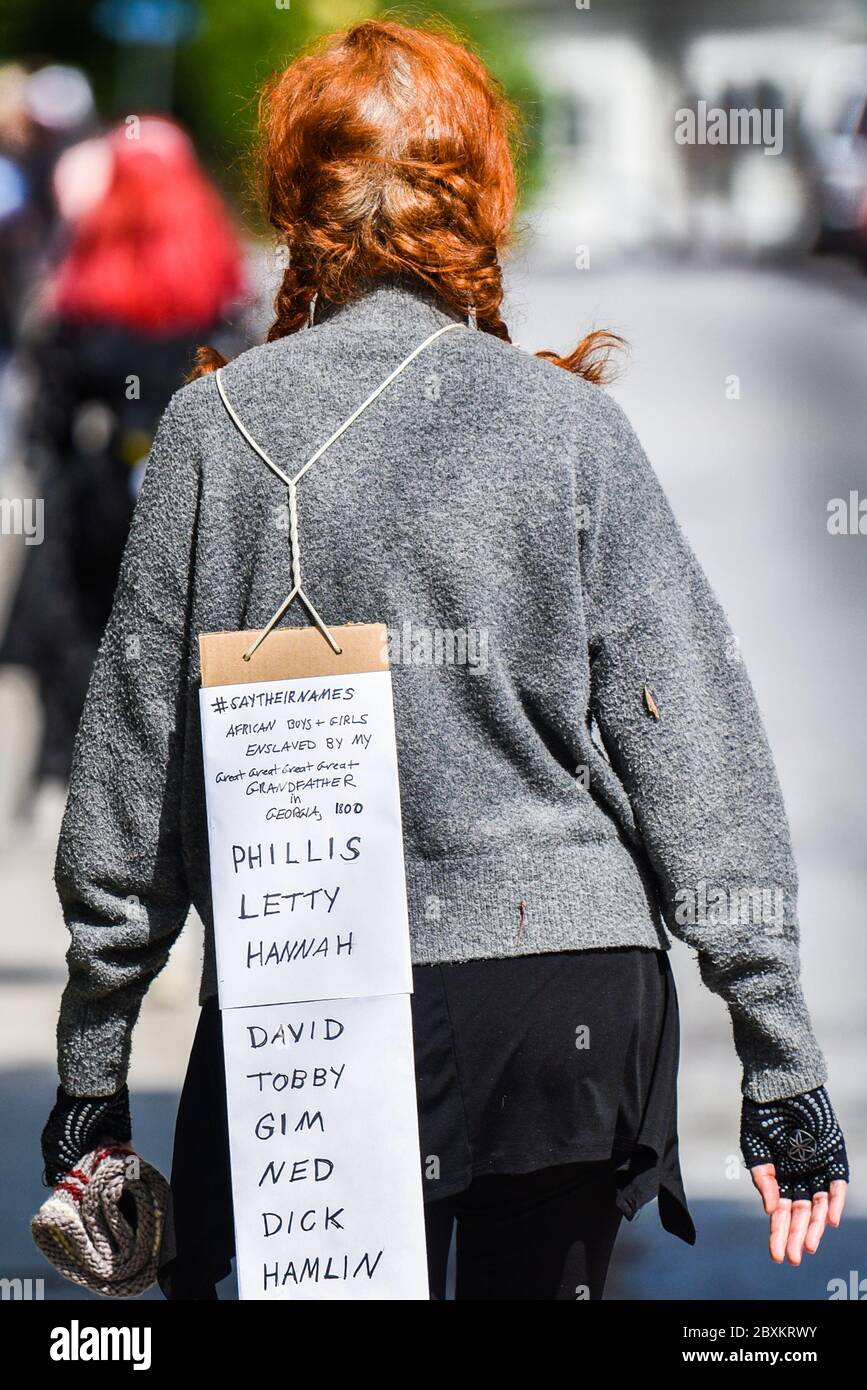 #SAYTHEIRNAMES
AFRICAN BOYS + GIRLS
ENSLAVED BY MY
Great Great Great Great
GRANDFATHER
in
GEORGIA, 1800
PHILLIS
LETTY
HANNAH
DAVID
TOBBY
GIM
NED
DICK
HAMLIN
alamy
Image ID: 2BXKRWY
www.alamy.com